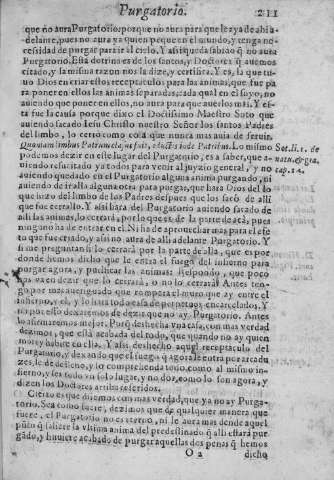 Purgatorio. 211
que no aura Purgatorio: porque no aura para que le aya de ahi a-
delante, pues no aura ya quien peque en el mundo, y tenga ne-
cessidad de purgar para ir al cielo. Y assi queda sabido que no aura
Purgatorio. Esta dotrina es de los santos, y Doctores que auemos
citado, y la misma razon nos la dize, y certifica. Y es, la que tu-
uo Dios en criar estos receptaculos para las animas, que fue pa
ra poner en ellos las animas separadas; cada qual en el suyo, no
auiendo que poner en ellos, no aura para que auerlos mas. Y es-
ta fue la causa porque dixo el Doctissimo Maestro Soto que
auiendo sacado Iesu Christo nuestro Señor los santos Padres
del limbo, lo cerro como cosa que nunca mas auia de seruir.
Quoniam limbus Patrum clausus fuit, eductis inde Patribus. Lo mismo
podemos dezir en este lugar del Purgatorio, es a saber, que a-
uiendo resucitado ya todos para venir al juyzio general, y no
auiendo quedado en el Purgatorio alguna anima purgando, ni
auiendo de ir alla alguna otra para purgar, que hara Dios del lo
que hizo del limbo de los Padres despues que los sacò de alli
que fue cerrallo. Y assi hara del Purgatorio auiendo sacado de
alli las animas, lo cerrarà, por lo que es de la parte de acà, pues
ninguno ha de entrar en el. Ni ha de aprouechar mas para el efe
to que fue criado, y assi no aura de alli adelante Purgatorio. Y
si me preguntan si lo cerrarà por la parte de allà, que es por
donde hemos dicho que le entra el fuego del infierno para
purgar agora, y purificar las animas: Respondo, que poco
nos va en dezir que lo cerrarà, o no lo cerrarà: Antes ten-
go por mas aueriguado que rompera el muro que ay entre el
infierno, y el, y lo hara toda casa de perpetuos encarcelados. Y
no por esso dexaremos de dezir que no ay Purgatorio. Antes
lo afirmaremos mejor. Porque deshecha vna casa, con mas verdad
dezimos, que està acabada del todo, que quando no ay quien
more y habite en ella. Y assi deshecho aquel receptaculo del
Purgatorio, y dexando que el fuego que agora le entra por arcadu
zes, le dè de lleno, y lo comprehenda todo, como al mismo in-
fierno, y sea todo vn solo lugar, y no dos, como lo son agora, y
dizen los Doctores arriba referidos.
Cierto es que diremos con mas verdad, que ya no ay Purga-
torio. Sea como fuere, dezimos que de qualquier manera que
fuere, el Purgatorio no es eterno, ni le aura mas desde aquel
punto que saliere la vltima anima del predestinado que alli estarà pur
gado, y huuiere acabado de purgar aquellas dos penas que hemos
O 2 dicho
Sot. li. 1. de
natu. & gra.
cap. 14.